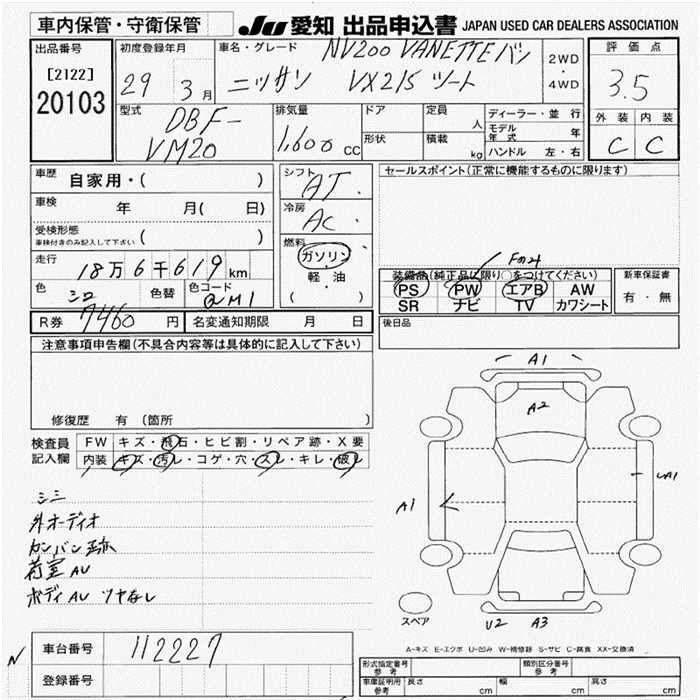 車内保管・守衛保管
JU 愛知 出品申込書 JAPAN USED CAR DEALERS ASSOCIATION
出品番号
[2122]
20103
初度登録年月
29 3月
車名・グレード
NV200 VANETTE バン
ニッサン VX215 ツート
2WD
・
4WD
評価点
3.5
外装 内装
C C
型式
DBF-
VM20
排気量
1,600 CC
ドア
形状
定員
人
積載
kg
ディーラー・並行
モデル年式 年
ハンドル 左・右
車歴 自家用・( )
車検 年 月( 日)
受検形態
車検付きのみ記入して下さい ( )
走行 18万6千619km
色 シロ 色替 色コード QM1
シフト AT
冷房 AC
燃料
ガソリン
・
軽・油
( )
セールスポイント(正常に機能するものに限ります)
Fのみ
装備品(純正品に限り○をつけてください)
PS PW エアB AW
SR ナビ TV カワシート
新車保証書
有・無
R券 7460円 名変通知期限 月 日
後日品
注意事項申告欄(不具合内容等は具体的に記入して下さい)
修復歴 有 (箇所 )
検査員
記入欄
FW キズ・飛石・ヒビ割・リペア跡・X要
内装 キズ・汚レ・コゲ・穴・スレ・キレ・破レ
シミ
外オーディオ
カンバン跡
荷室AU
ボディAU ツヤなし
A1
A2
A1
UA1
スペア
U2 A3
A-キズ E-エクボ U-凹み W-補修跡 S-サビ C-腐食 XX-交換済
N
車台番号 112227
登録番号
形式指定番号
参考
類別区分番号
参考
車庫証明用
参考
長さ cm
幅 cm
高さ cm